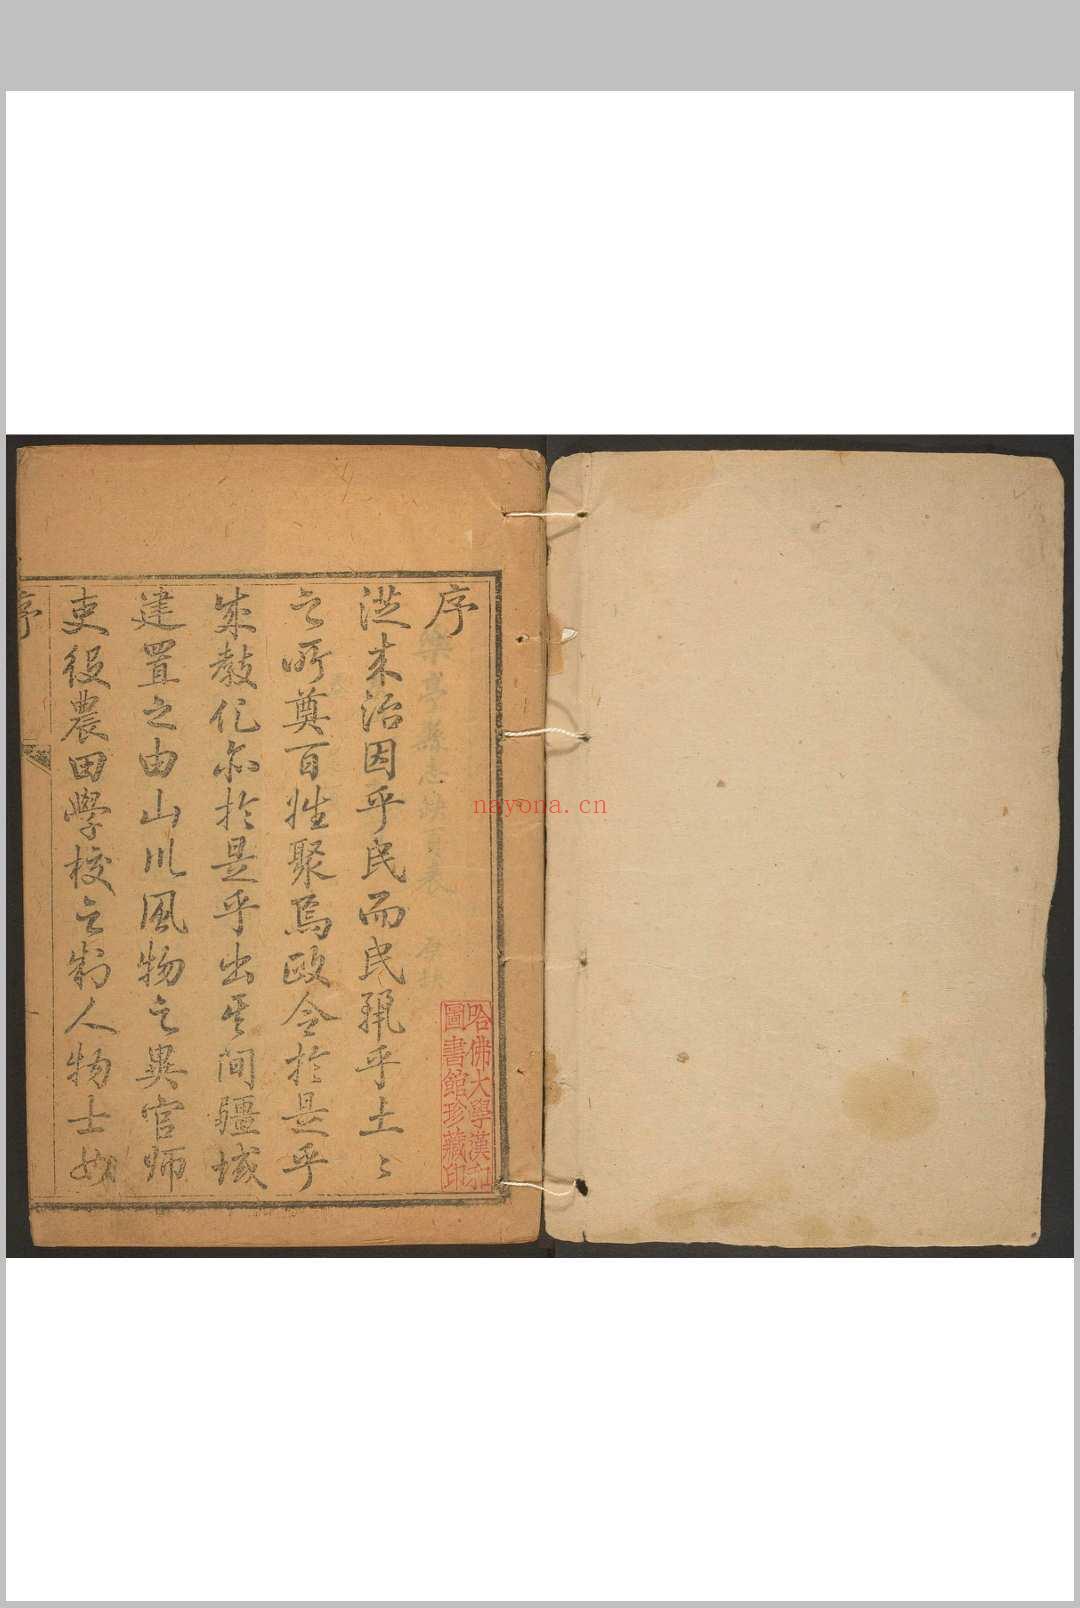 序
樂亭縣志缺頁表
哈佛大學漢和
圖書館珍藏印
從来治因乎民而民乎土〻
之所奠百姓聚焉政令於是乎
成教化亦於是乎出其间疆域
建置之由山川風物之異官师
吏役農田學校之制人物士女
序
nayona.cn